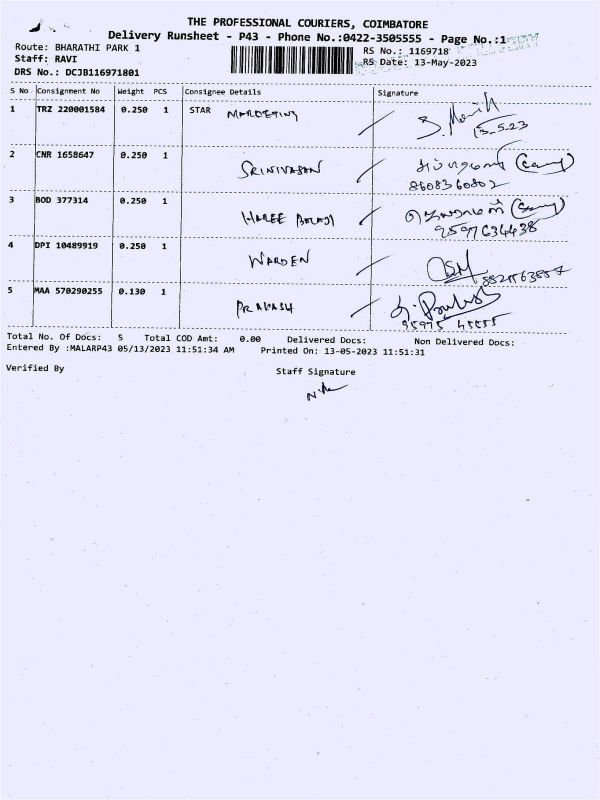 THE PROFESSIONAL COURIERS, COIMBATORE
Delivery Runsheet - P43 - Phone No.:0422-3505555 - Page No.:1
Route: BHARATHI PARK 1
RS No.: 1169718
Staff: RAVI
RS Date: 13-May-2023
DRS No.: DCJB116971801
S No Consignment No Weight PCS Consignee Details Signature
1 TRZ 220001584 0.250 1 STAR MARKETING
13-5-23
2 CNR 1658647 0.250 1 SRINIVASAN
8608360802
3 BOD 377314 0.250 1 HAREE BALAJI
9597634438
4 DPI 10489919 0.250 1 WARDEN
5 MAA 570290255 0.130 1 PRAKASH
Total No. Of Docs: 5 Total COD Amt: 0.00 Delivered Docs: Non Delivered Docs:
Entered By :MALARP43 05/13/2023 11:51:34 AM Printed On: 13-05-2023 11:51:31
Verified By
Staff Signature